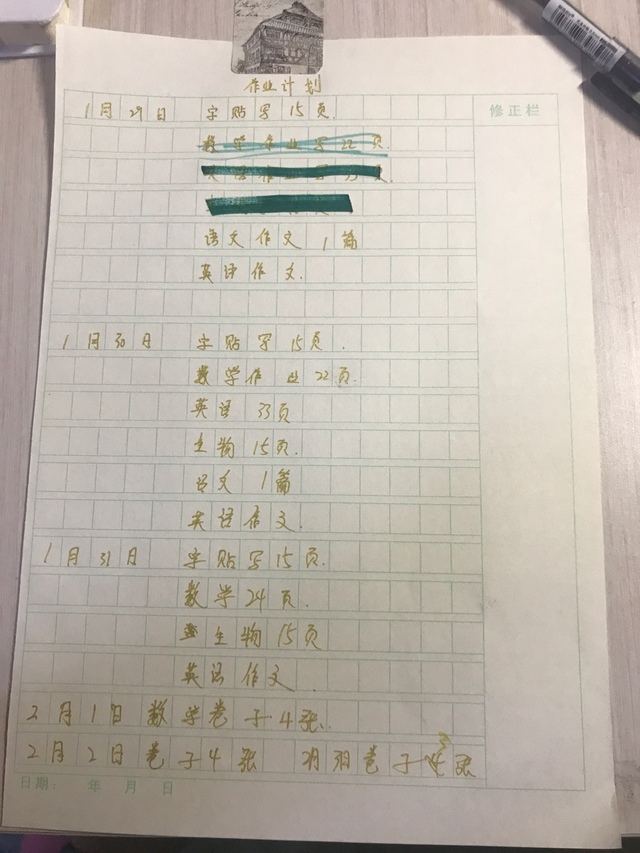 作业计划
1月29日 字贴写15页.
修正栏
数学作业写22页.
语文作文1篇
英语作文.
1月30日 字贴写15页.
数学作业22页.
英语33页
生物15页.
语文1篇
英语作文.
1月31日 字贴写15页.
数学24页.
生物15页
英语作文.
2月1日数学卷子4张.
2月2日卷子4张 卷子 张
日期: 年 月 日